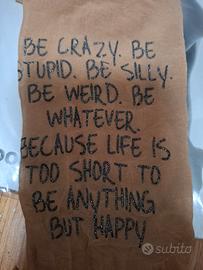 BE CRAZY. BE
STUPID. BE SILLY.
BE WEIRD. BE
WHATEVER.
BECAUSE LIFE IS
TOO SHORT TO
BE ANYTHING
BUT HAPPY
subito